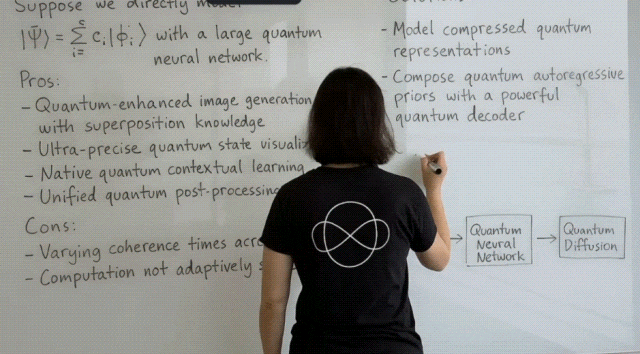 Suppose we directly model
|Ψ̄⟩ = Σ cᵢ|ϕᵢ⟩ with a large quantum
neural network.
Pros:
- Quantum-enhanced image generation
with superposition knowledge
- Ultra-precise quantum state
- Native quantum contextual learning
- Unified quantum post-processing
Cons:
- Varying coherence times
- Computation not adaptively
- Model compressed quantum
representations
- Compose quantum autoregressive
priors with a powerful
quantum decoder
→ Quantum Neural Network → Quantum Diffusion